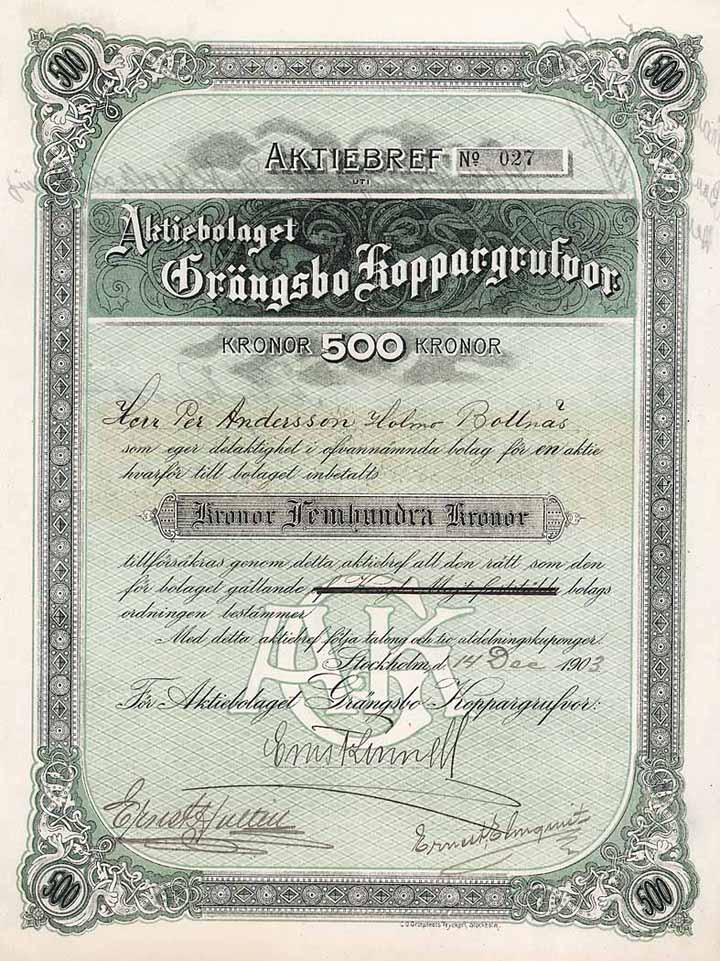 500 500
AKTIEBREF Nº 027
UTI
Aktiebolaget
Grängsbo Koppargrufvor
KRONOR 500 KRONOR
Herr Per Andersson Holmo Bollnäs
som eger delaktighet i ofvannämnda bolag för en aktie
hvarför till bolaget inbetalts
Kronor Femhundra Kronor
tillförsäkras genom detta aktiebref all den rätt som den
för bolaget gällande bolags
ordningen bestämmer
Med detta aktiebref följa talong och tio utdelningskuponger.
Stockholm d. 14 Dec 1903
För Aktiebolaget Grängsbo Koppargrufvor:
Ernst
Ernst Hultin
Ernest Elmquist
500 500
Stockholm